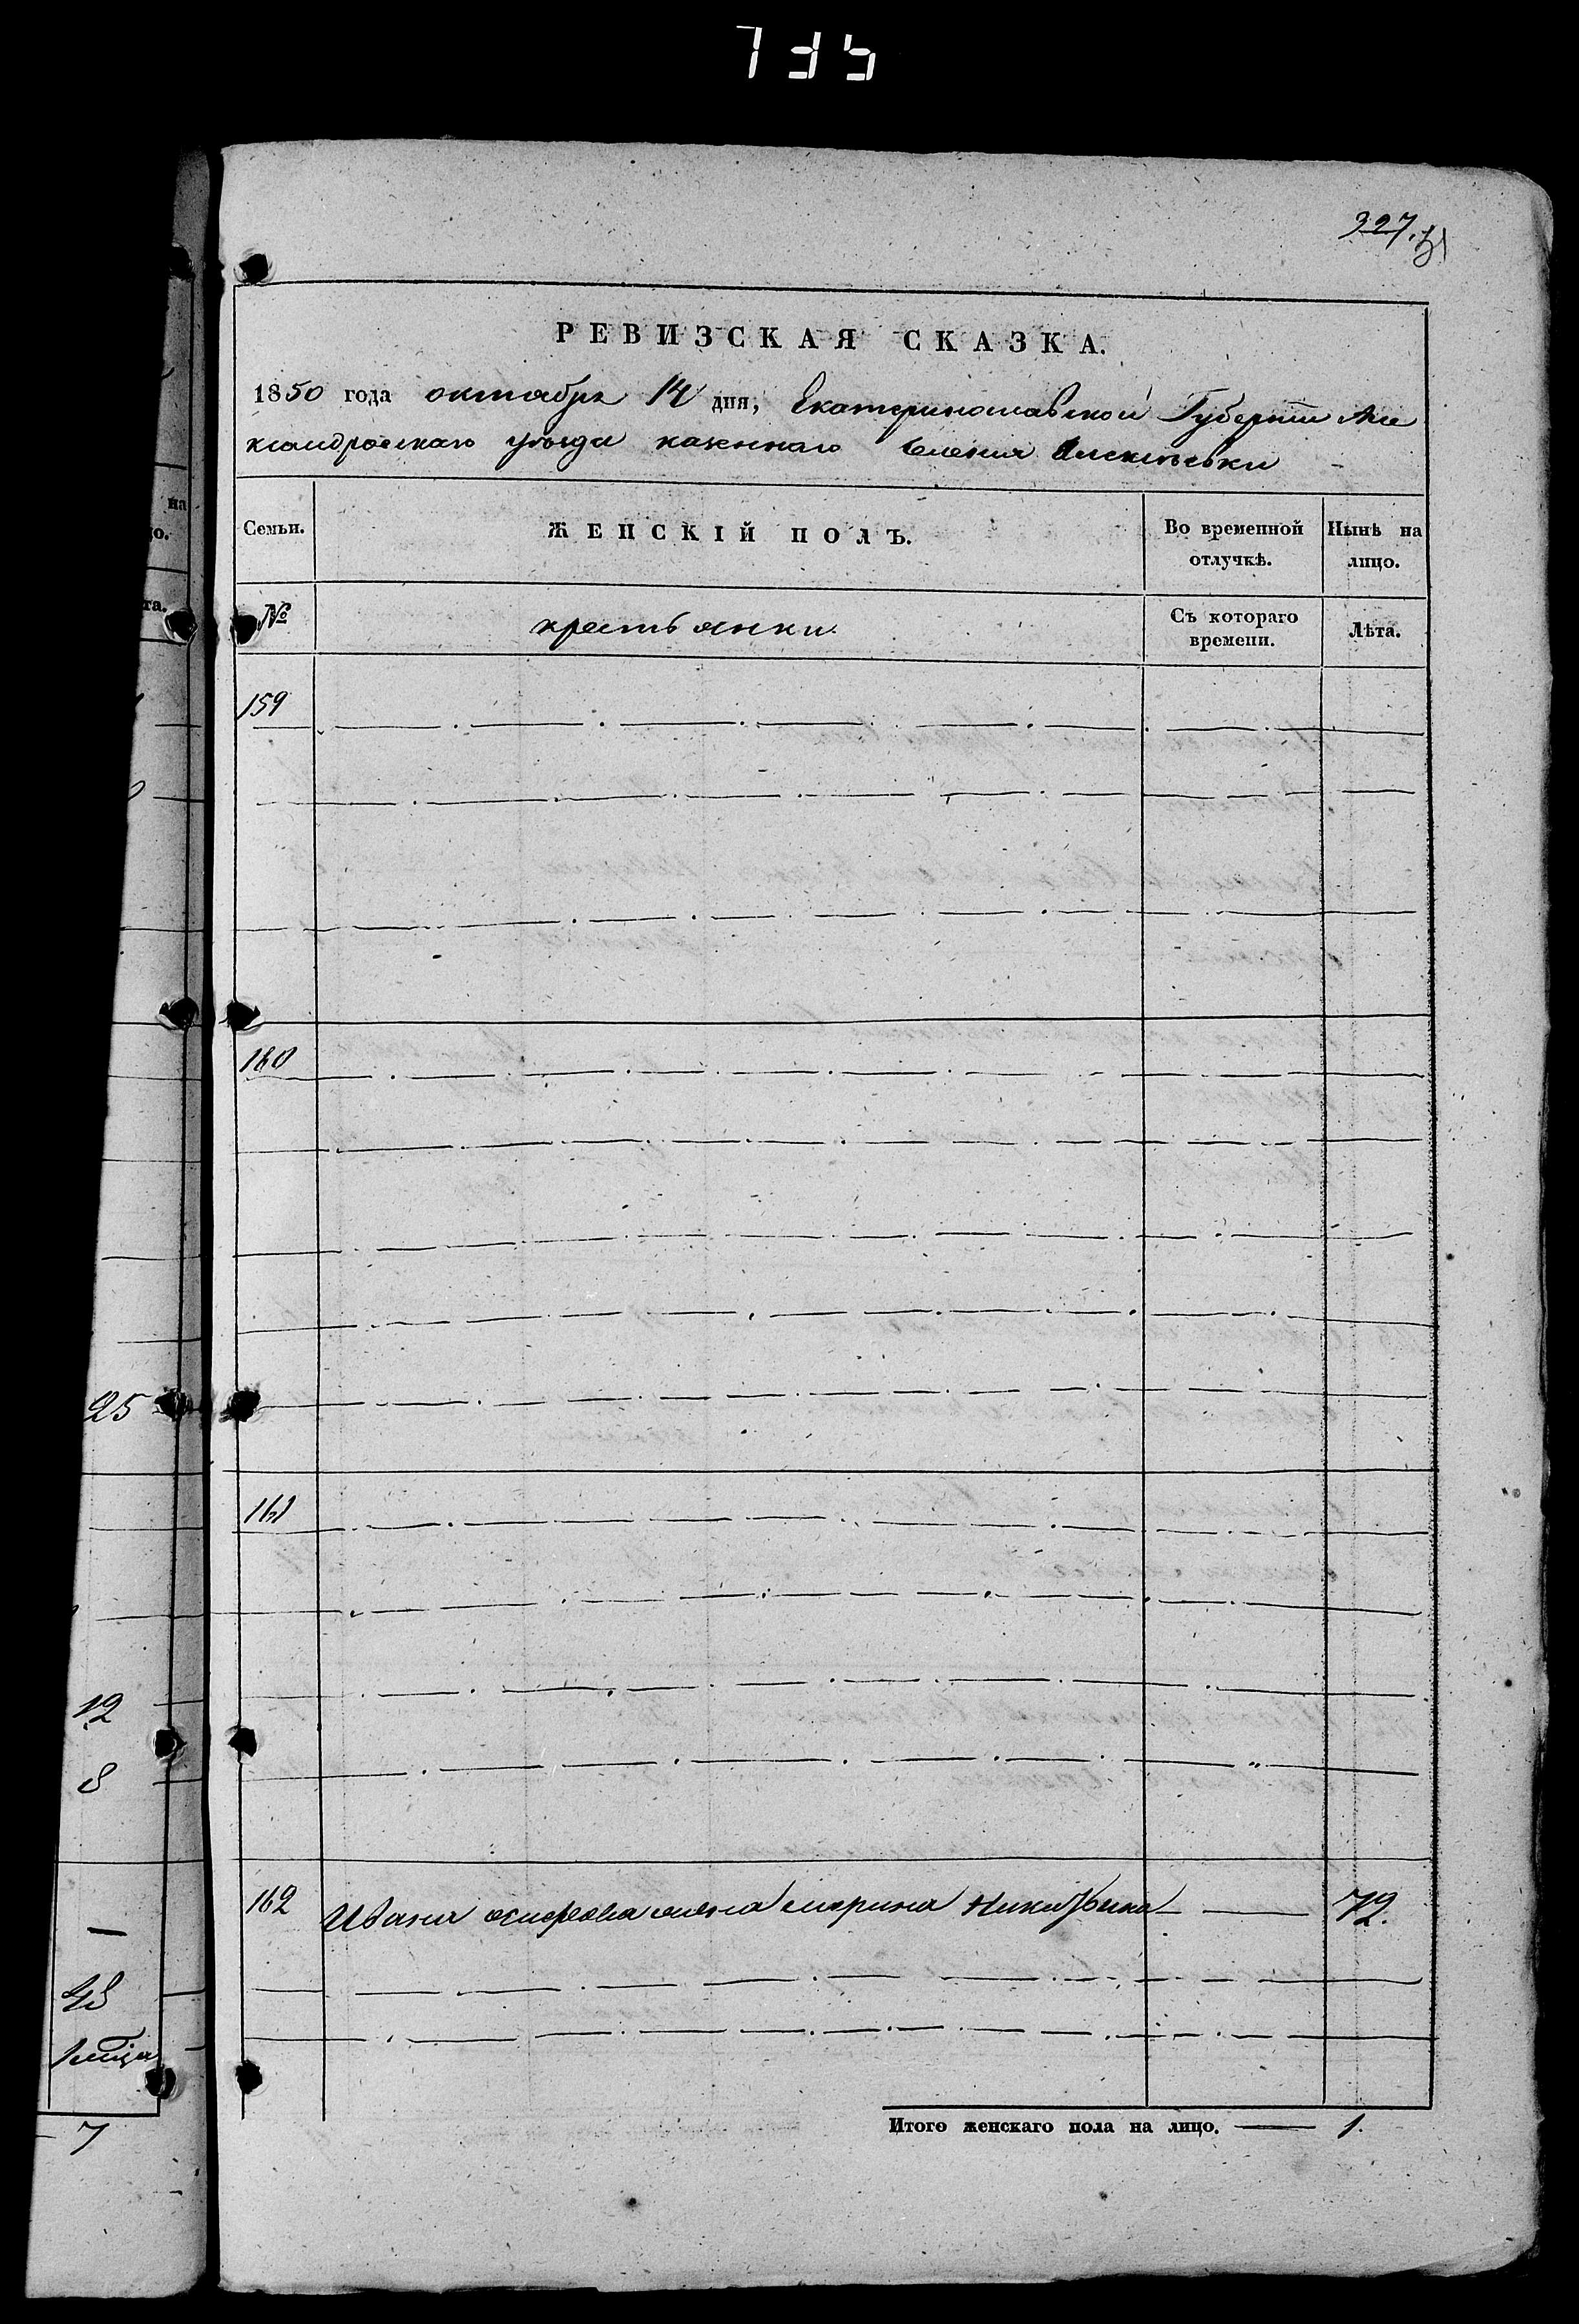 735
327.
РЕВИЗСКАЯ СКАЗКА.
1850 года октября 14 дня, Екатеринославской Губернии Але
ксандровскаго уѣзда казеннаго селения Алексѣевки
Семьи.
ЖЕНСКІЙ ПОЛЪ.
Во временной отлучкѣ.
Нынѣ на лицо.
№
крестьянки.
Съ котораго времени.
Лѣта.
159
160
161
162 Ивана жена Марина 72.
Итого женскаго пола на лицо. 1.
на
го.
та.
25
12
8
48
7